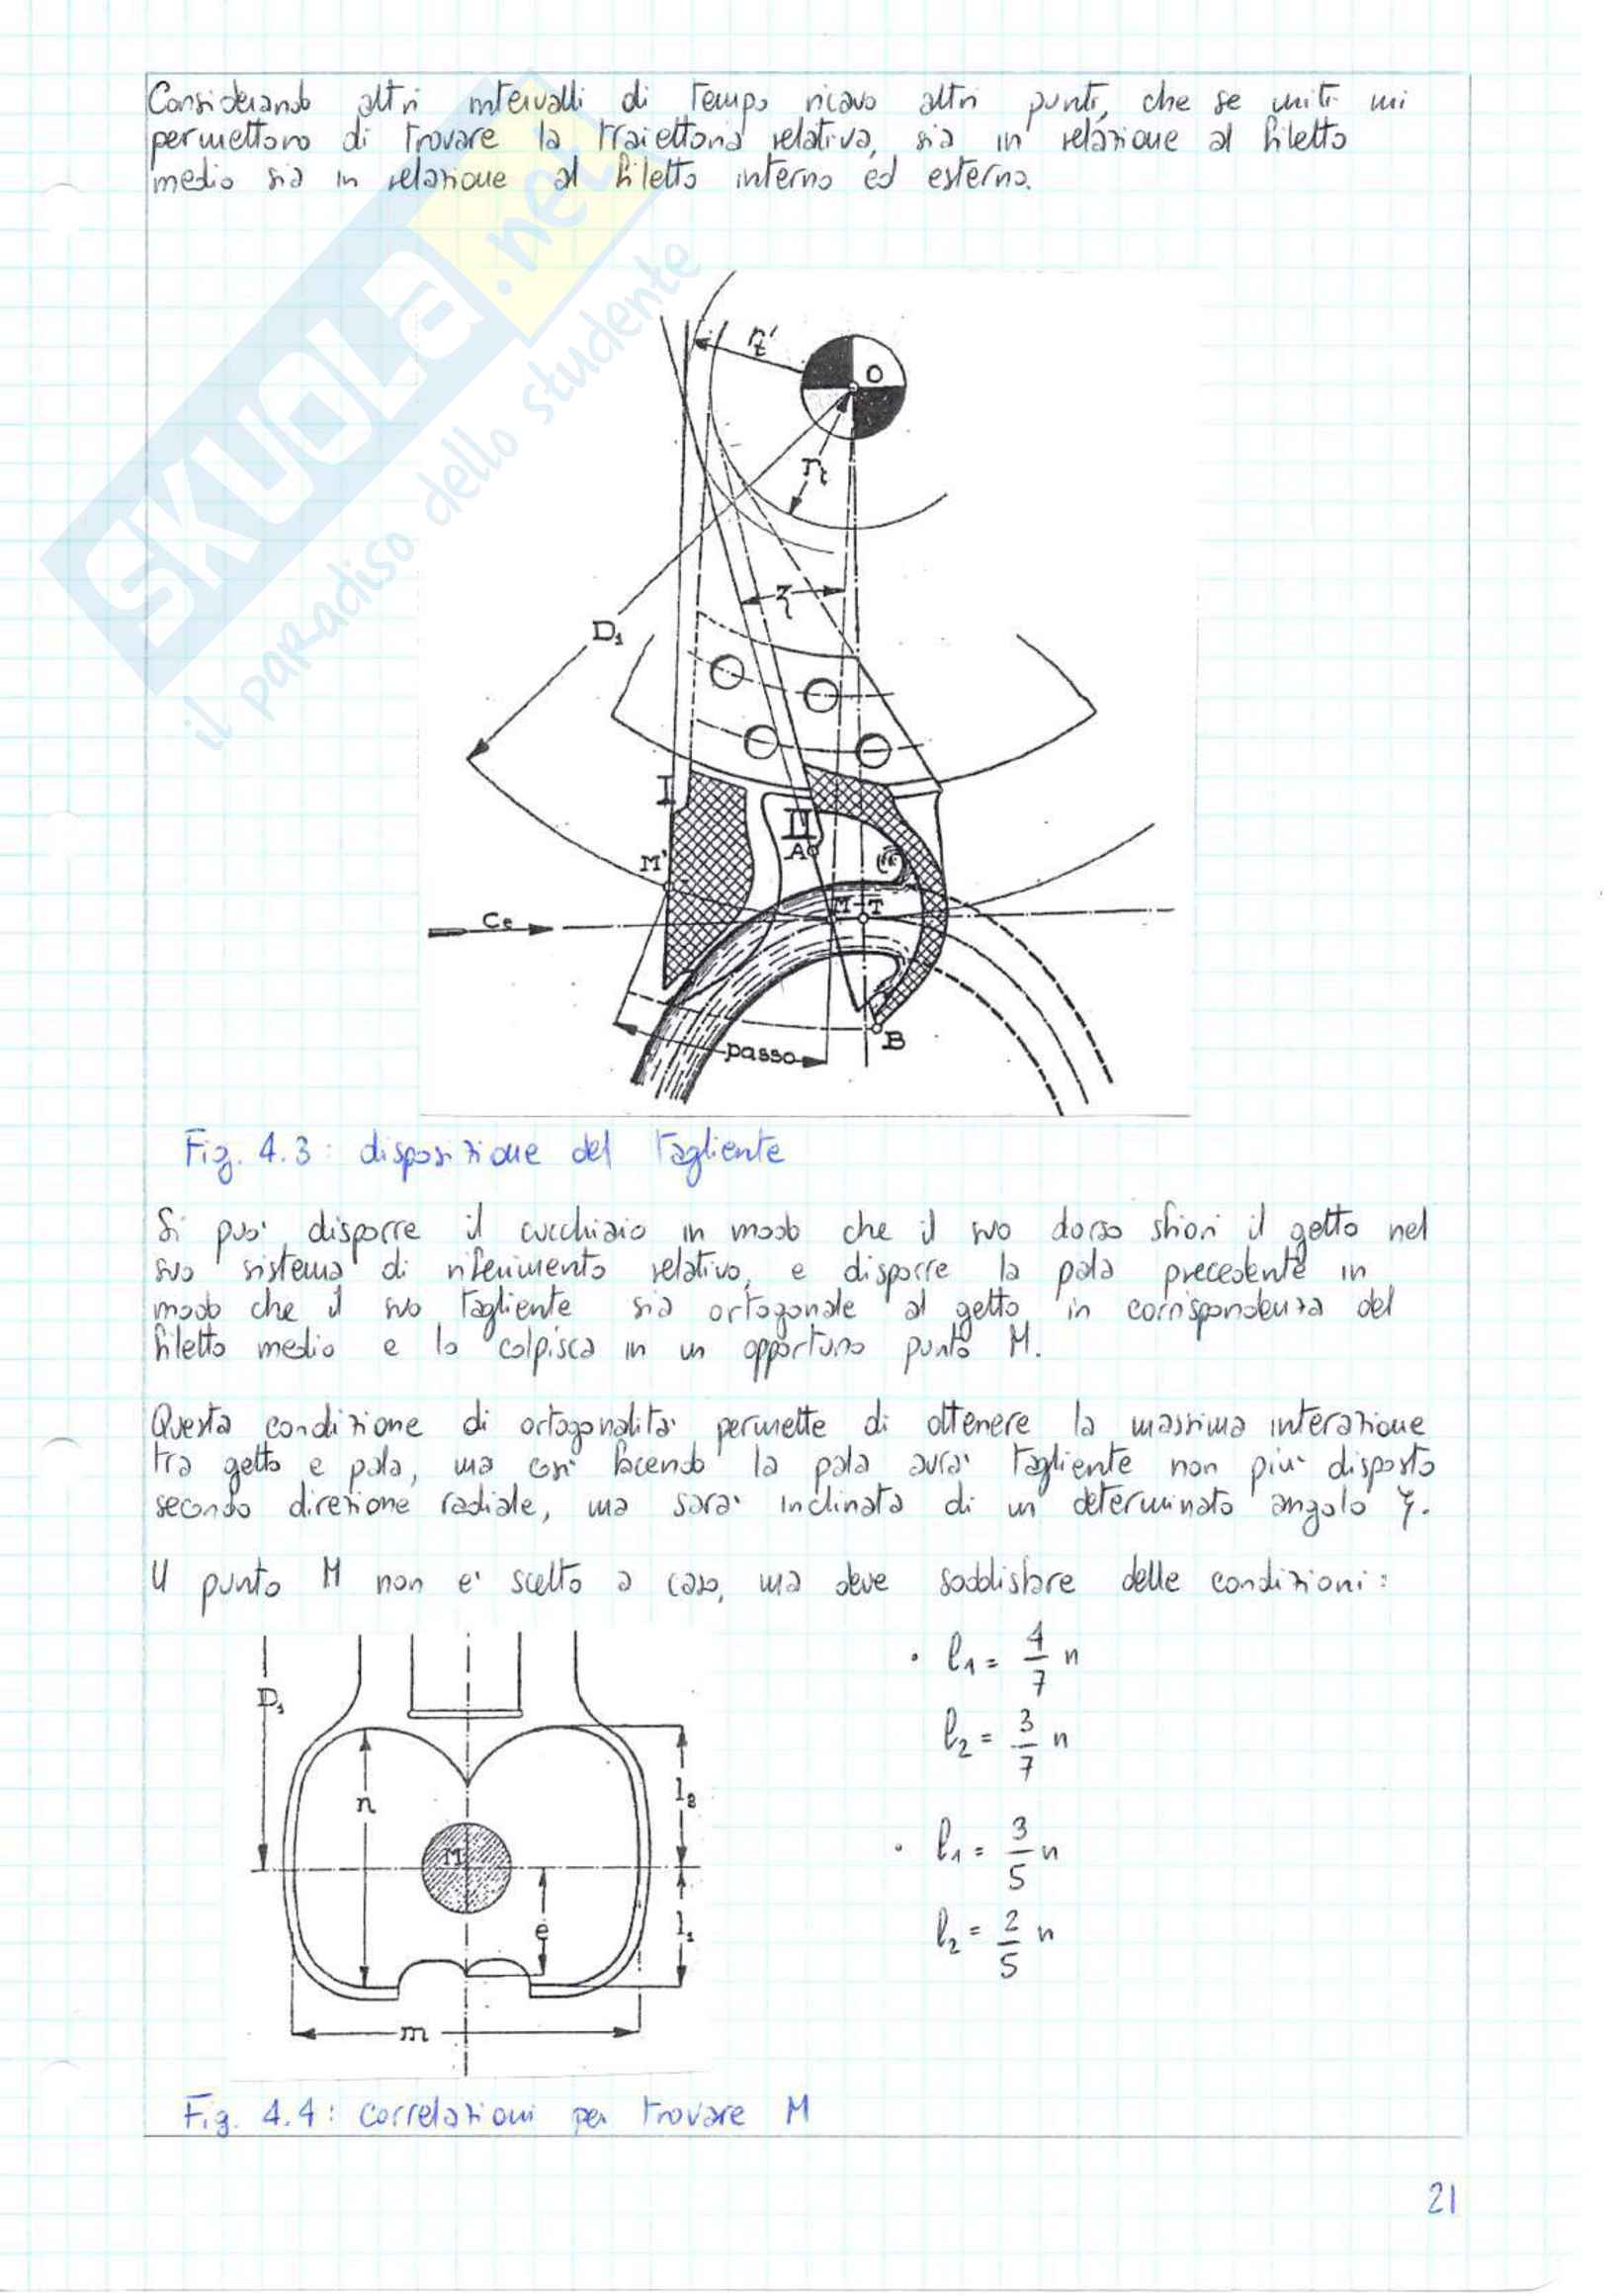 Considerando altri intervalli di tempo ricavo altri punti, che se uniti mi
permettono di trovare la traiettoria relativa, sia in relazione al filetto
medio sia in relazione al filetto interno ed esterno.
SKUOLA.net
il paradiso dello studente
r't
O
rt
ξ
D1
I
II
A
M'
M
T
C0
passo
B
Fig. 4.3: disposizione del tagliente
Si puo' disporre il cucchiaio in modo che il suo dorso sfiori il getto nel
suo sistema di riferimento relativo, e disporre la pala precedente in
modo che il suo tagliente sia ortogonale al getto in corrispondenza del
filetto medio e lo colpisca in un opportuno punto M.
Questa condizione di ortogonalita' permette di ottenere la massima interazione
tra getto e pala, ma cosi' facendo la pala avra' tagliente non piu' disposto
secondo direzione radiale, ma sara' inclinata di un determinato angolo ξ.
Il punto M non e' scelto a caso, ma deve soddisfare delle condizioni:
D1
n
M
e
l2
l1
m
· l1 = 4/7 n
l2 = 3/7 n
· l1 = 3/5 n
l2 = 2/5 n
Fig. 4.4: correlazioni per trovare M
21